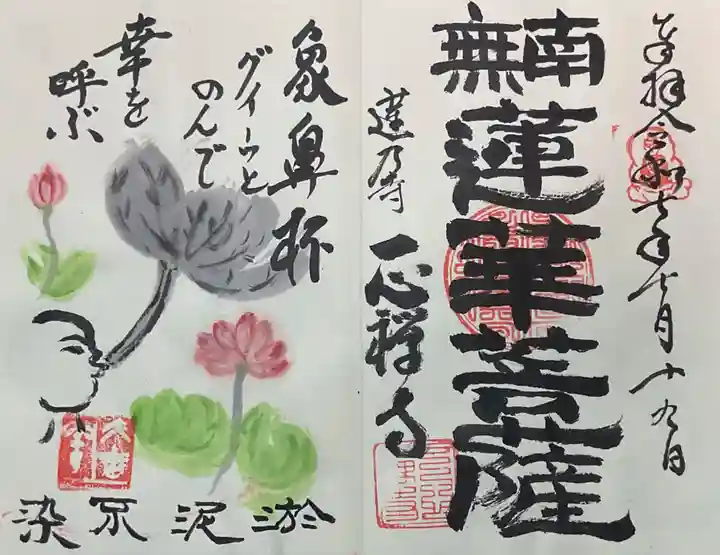 奉拝 令和七年七月十九日
南無
蓮華菩薩
蓮乃寺
一心禅寺
象鼻杯
グイーッと
のんで
幸を
呼ぶ
淤泥不染